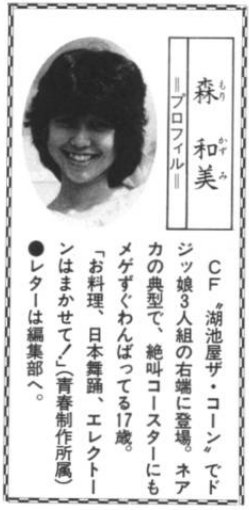 森 和美
もり かずみ
＝プロフィル＝
ＣＦ〝湖池屋ザ・コーン〟でド
ジッ娘3人組の右端に登場。ネア
カの典型で、絶叫コースターにも
メゲずぐわんばってる17歳。
「お料理、日本舞踊、エレクトー
ンはまかせて！」(青春制作所属)
●レターは編集部へ。